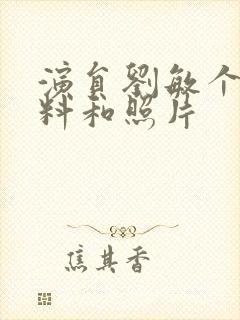 演員劉敏个
料和照片
焦其香